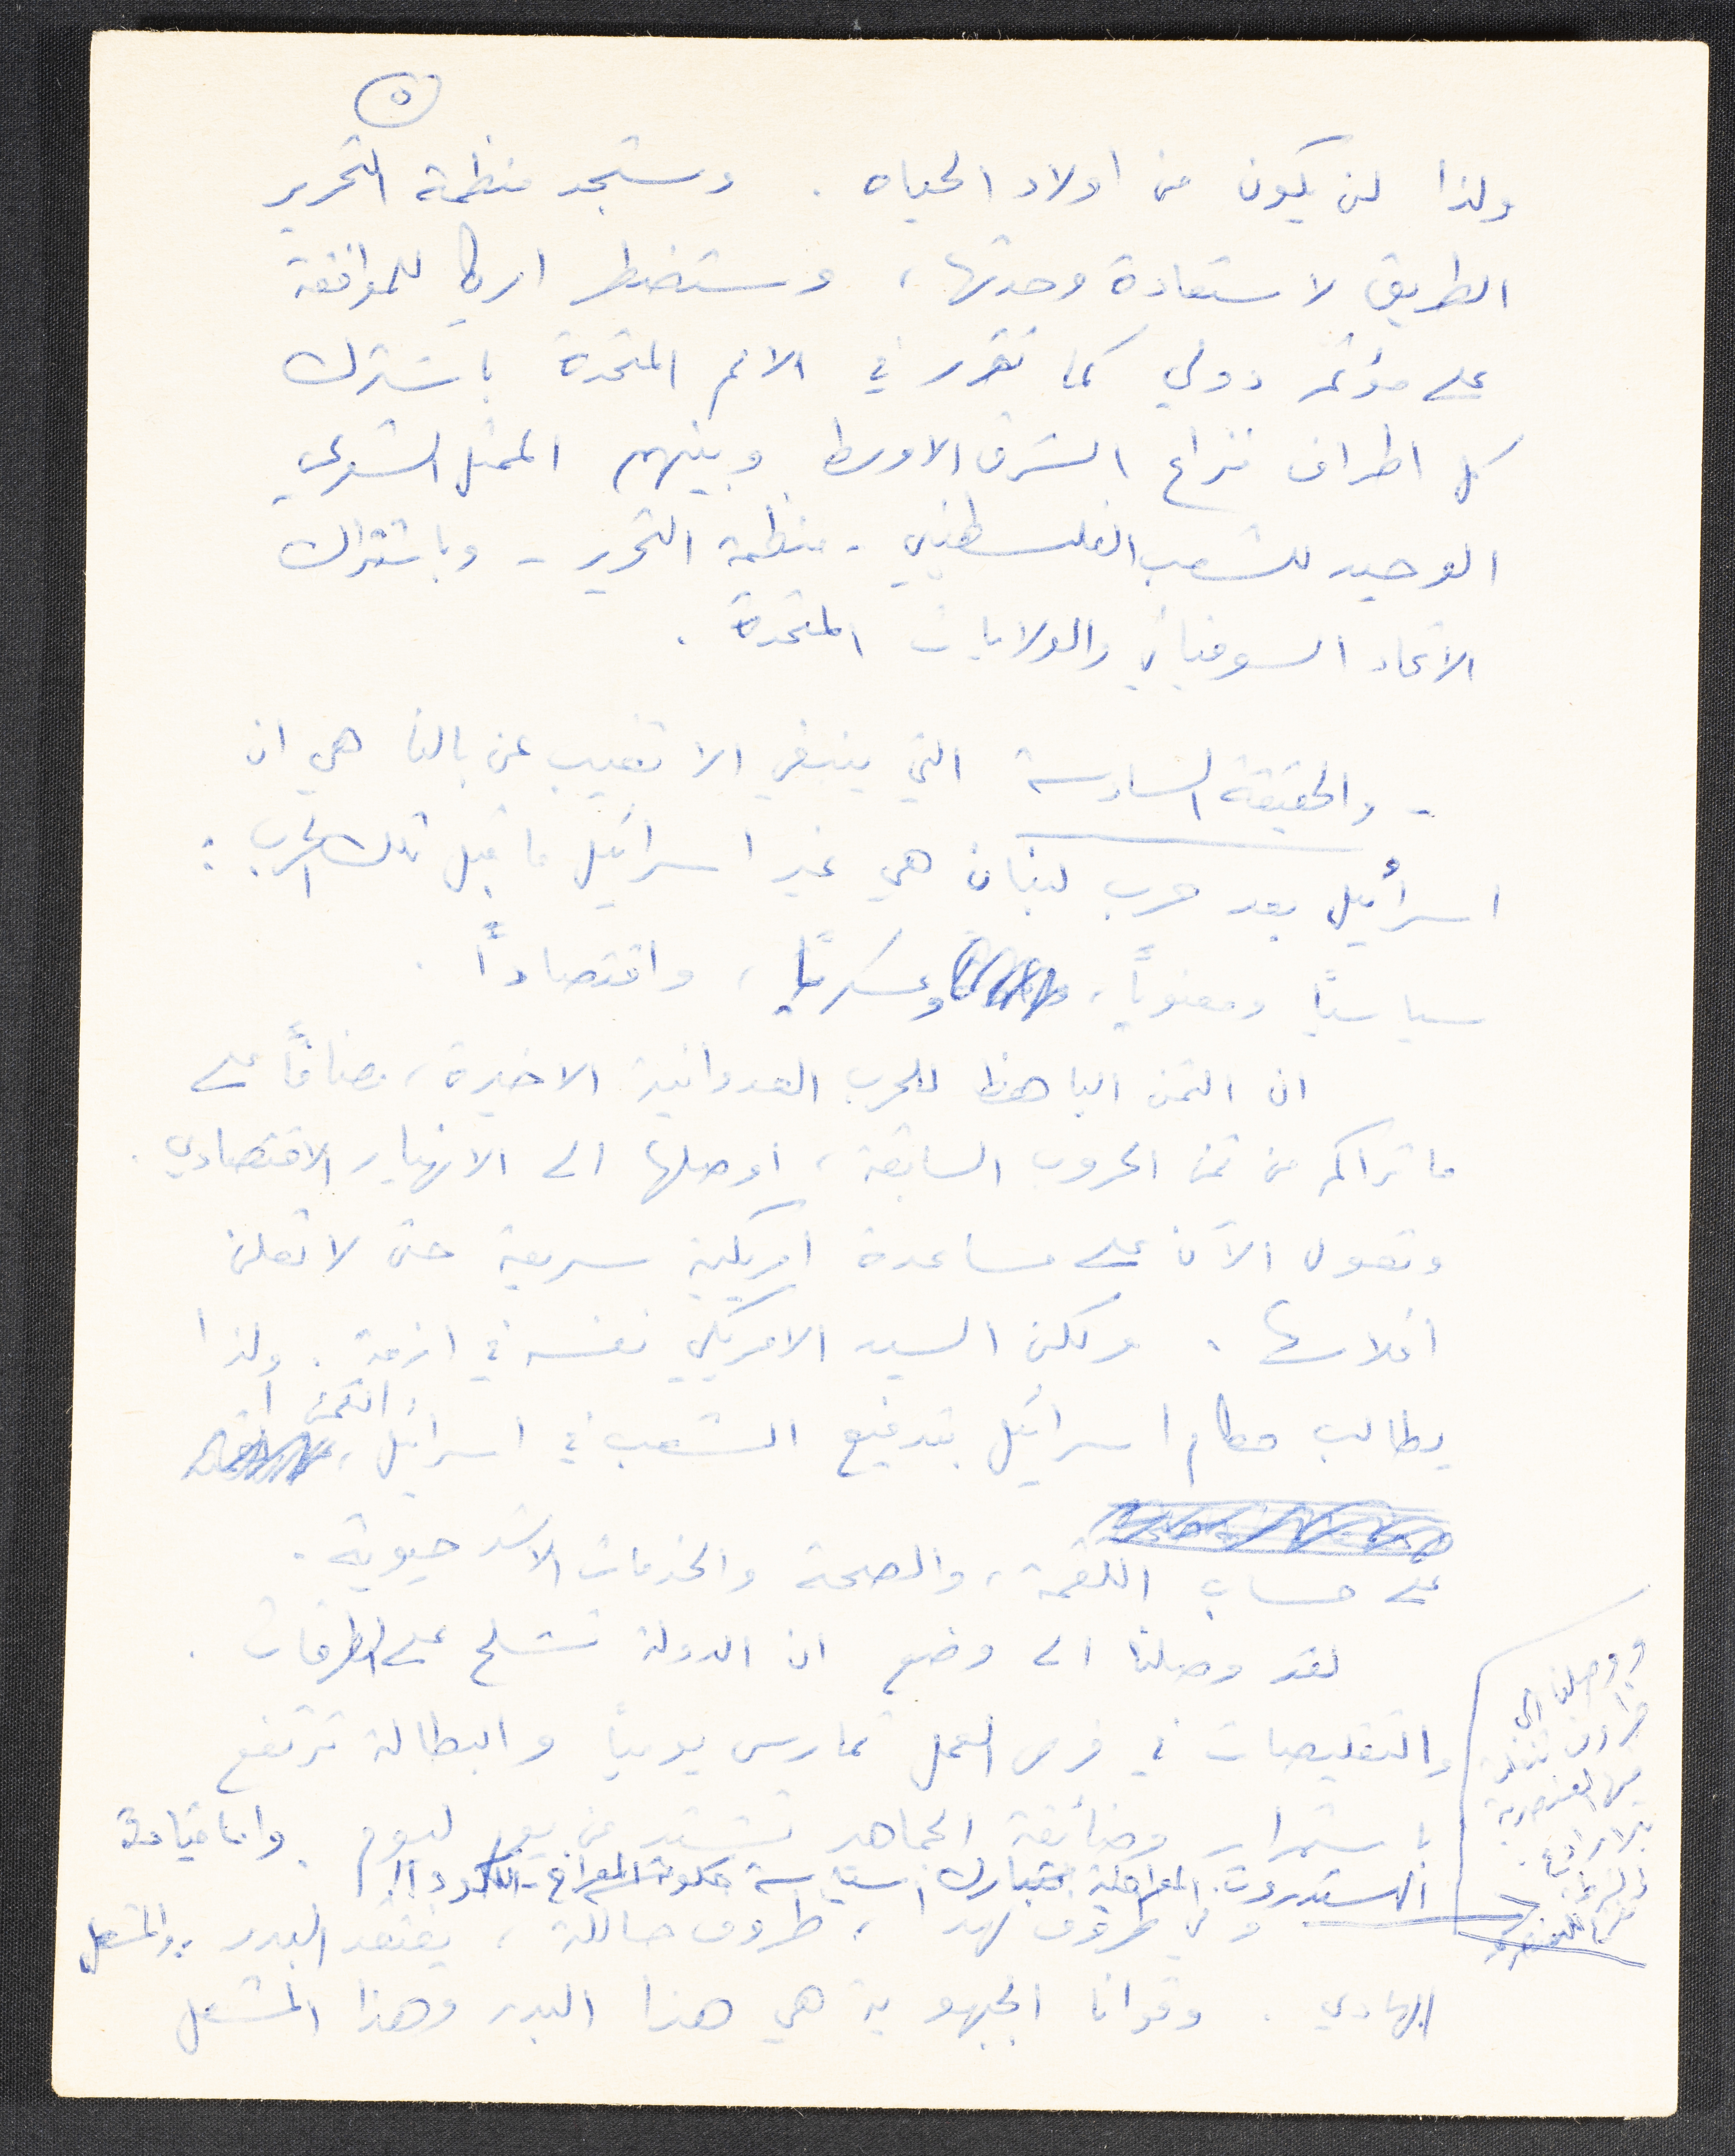 ٥
ولذا لن يكون من اولاد الحياه . وستجد منظمة التحرير
الطريق لاستعادة وحدتها ، وستضطر امريكا للموافقة
على مؤتمر دولي كما تقرر في الامم المتحدة باشتراك
كل اطراف نزاع الشرق الاوسط وبينهم الممثل الشرعي
الوحيد للشعب الفلسطيني - منظمة التحرير - وباشتراك
الاتحاد السوفياتي والولايات المتحدة .
- والحقيقة السادسة التي ينبغي الا تغيب عن بالنا هي ان
اسرائيل بعد حرب لبنان هي غير اسرائيل ما قبل تلك الحرب :
سياسيًا ومعنويًا ، وعسكريًا ، واقتصاديًا .
ان الثمن الباهظ للحرب العدوانية الاخيرة ، مضافًا على
ما تراكم من ثمن الحروب السابقة ، اوصلها الى الانهيار الاقتصادي .
وتعول الآن على مساعدة امريكية سريعة حتى لا تعلن
افلاسها . ولكن السيد الامريكي نفسه في ازمة . ولذا
يطالب حكام اسرائيل بتدفيع الشعب في اسرائيل ، الثمن
على حساب اللقمة ، والصحة والخدمات الاشد حيوية .
لقد وصلنا الى وضع ان الدولة تشلح على الطرقات .
والتقليصات في فرص العمل تمارس يوميًا والبطالة ترتفع
باستمرار وضائقة الجماهير تشتد من يوم ليوم . واما قيادة
الهستدروت المعراخية فتبارك سياسة حكومة المعراخ - الليكود !!
وفي ظروف كهذا ، ظروف حالكة ، يفتقد البدر ، والمشعل
الهادي . وقوانا الجبهوية هي هذا البدر وهذا المشعل
ووصلنا الى